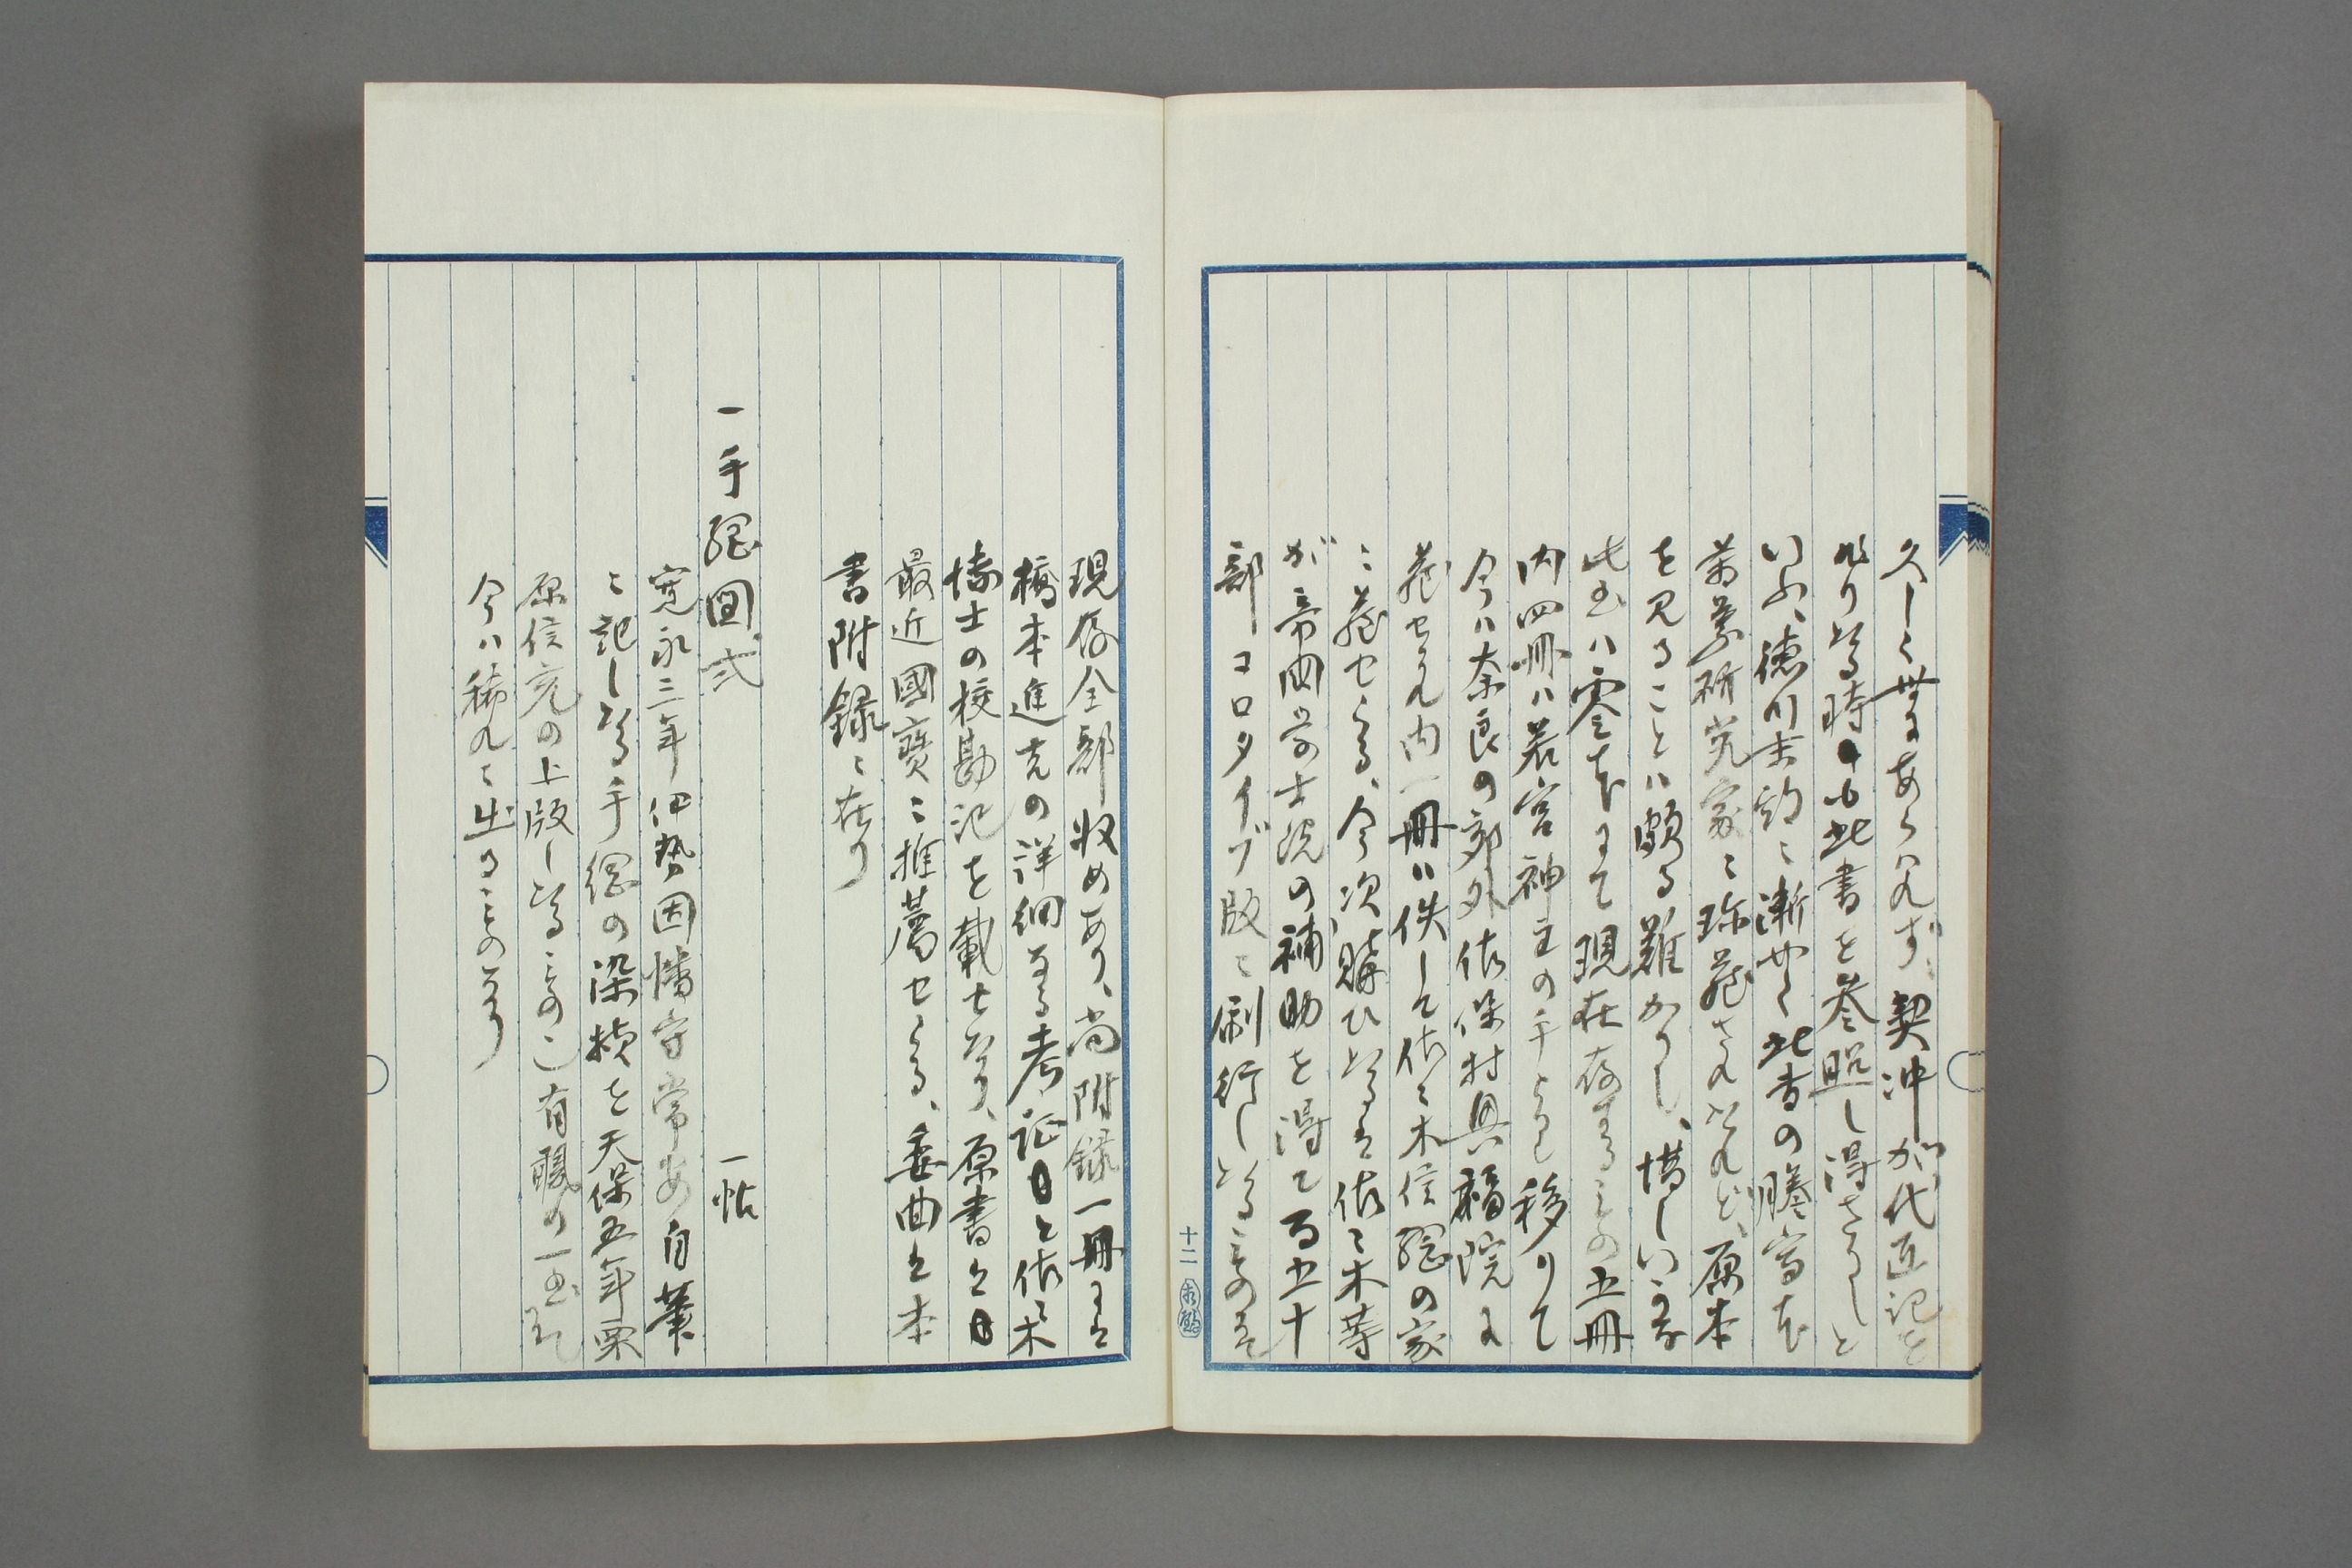 久しく世にあらハれず、契沖が代匠記を
作りたる時ニも此書を参照し得ざりしと
いふ、徳川末期ニ漸やく此書の謄寫本
萬葉研究家ニ珍蔵されたれど、原本
を見ることハ頗る難かりし、惜しいかな
此書ハ零本にて現在存するもの五冊
内四冊ハ若宮神主の手より移りて
今ハ奈良の郊外佐保村興福院に
蔵せられ内一冊ハ佚して佐々木信綱の家
ニ蔵せらる、今次購ひたる佐々木等
が帝国学士院の補助を得て百五十
部コロタイプ版ニ刷行したるものにて
十二
現存全部収めあり、尚附録一冊にハ
橋本進吉の詳細なる考証と佐々木
博士の校勘記を載せたり、原書ハ
最近國寶ニ推薦せらる、委曲ハ本
書附録ニ在り
一手綱図式 一帖
寛永三年伊勢因幡守常安自筆
ニ記したる手綱の染模を天保五年栗
原信充の上版したるもの也、有職の一書にて
今ハ稀れニ出るものなり